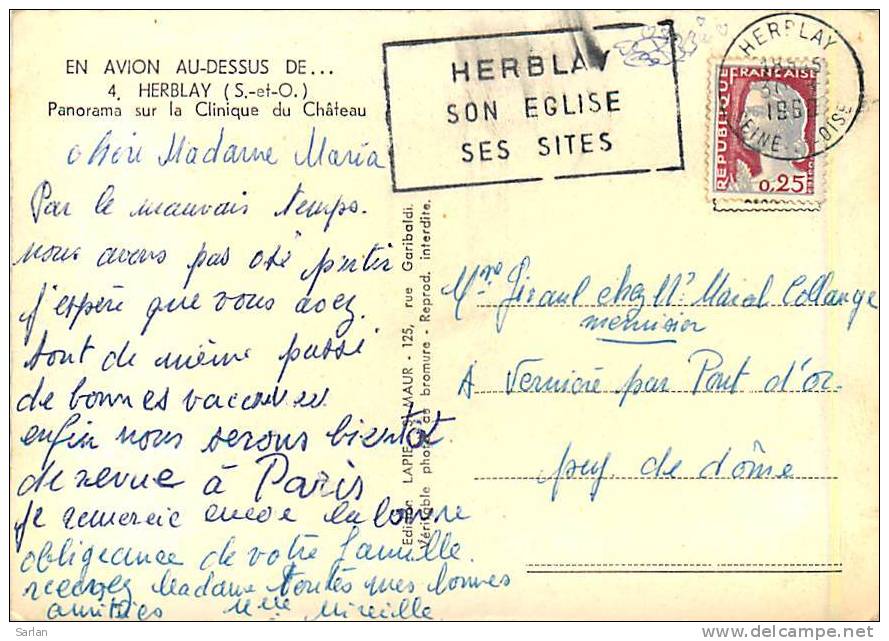 EN AVION AU-DESSUS DE...
4. HERBLAY (S.-et-O.)
Panorama sur la Clinique du Château
chère Madame Maria
Par le mauvais temps.
nous avons pas osé partir
j'espère que vous avez
tout de même passé
de bonnes vacances
enfin nous serons bientôt
de revue à Paris
je remercie encore la bonne
obligeance de votre famille.
recevez Madame toutes mes bonnes
amitiés Mlle Mireille
Edition LAPIE, ST MAUR - 125, rue Garibaldi.
Véritable photo au bromure - Reprod. interdite.
HERBLAY
SON EGLISE
SES SITES
HERBLAY
SEINE ET OISE
REPUBLIQUE FRANÇAISE
0,25
Mme Giraud chez Mr Marcel Collange
menuisier
A Verniere par Pont d'or.
puy. de dôme
Sarlan
www.delcampe.net